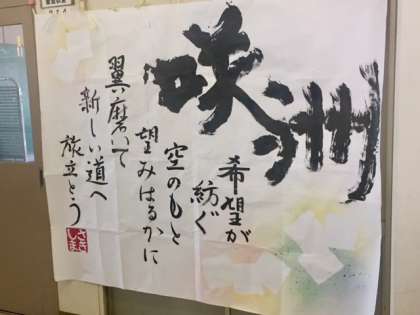 咲洲
希望が
紡ぐ
空のもと
望みはるかに
翼磨いて
新しい道へ
旅立とう
さきしま